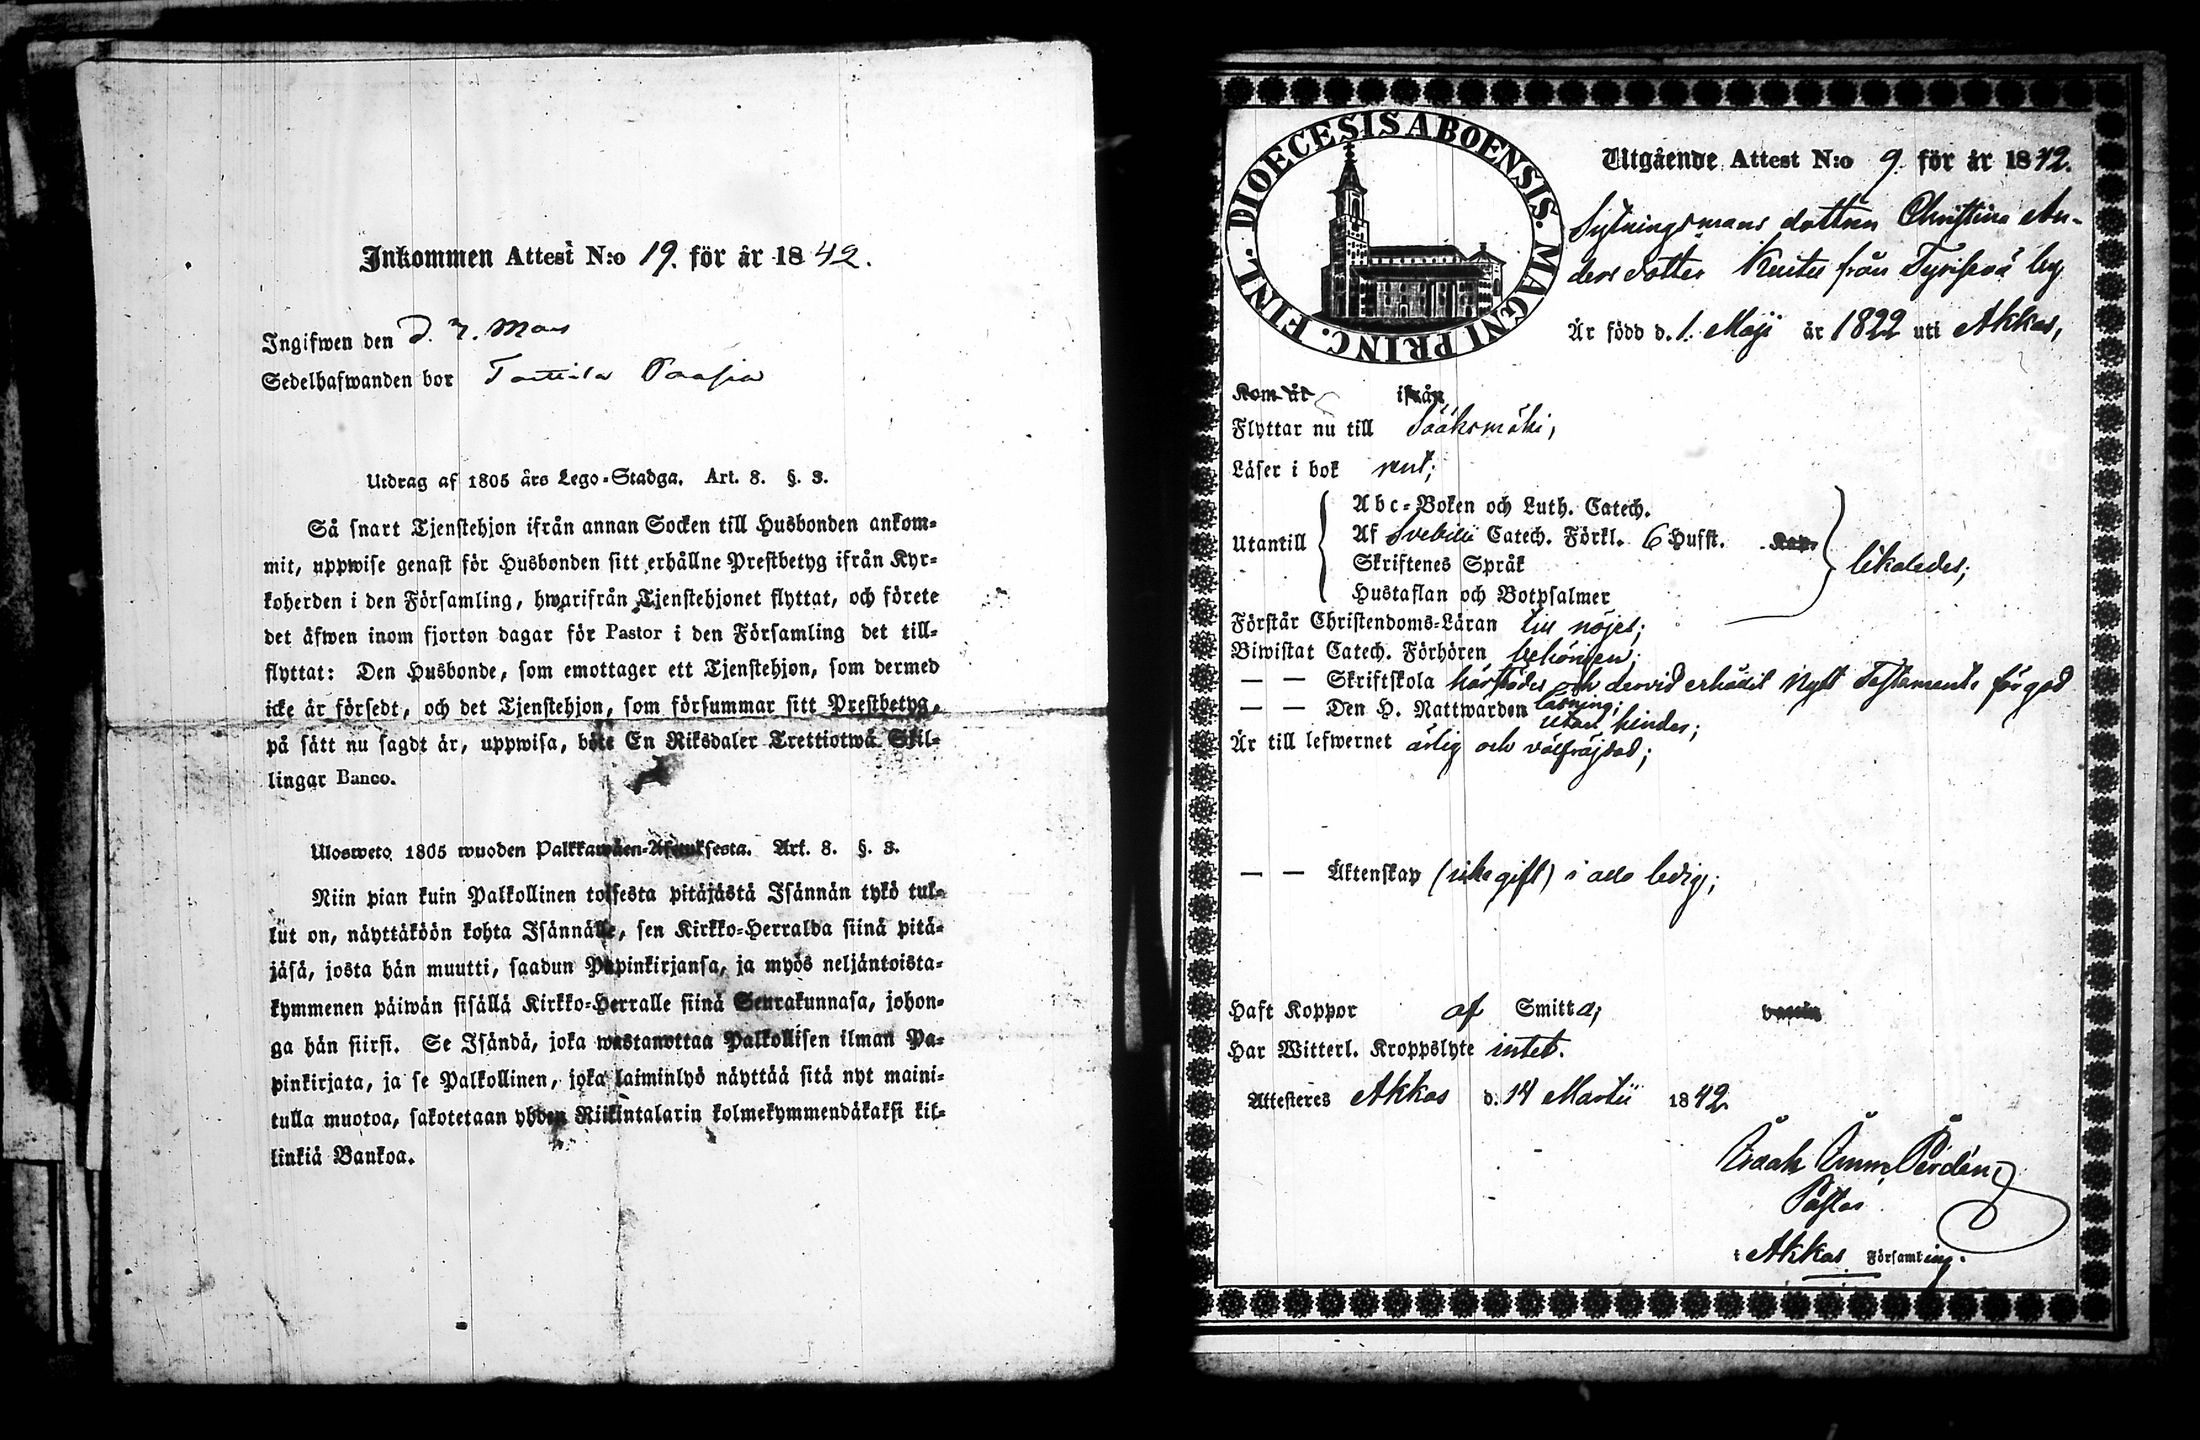 Inkommen Attest N:o 19. för år 1842.
Ingifwen den d. 7. Mars
Sedelhafwanden bor
Utdrag af 1805 års Lego-Stadga. Art. 8. §. 3.
Så snart Tjenstehjon ifrån annan Socken till Husbonden ankom-
mit, uppwise genast för Husbonden sitt erhållne Prestbetyg ifrån Kyr-
koherden i den Församling, hwarifrån Tjenstehjonet flyttat, och förete
det äfwen inom fjorton dagar för Pastor i den Församling det till-
flyttat: Den Husbonde, som emottager ett Tjenstehjon, som dermed
icke är försedt, och det Tjenstehjon, som försummar sitt Prestbetyg,
på sätt nu sagdt är, uppwisa, böte En Riksdaler Trettiotwå Skil-
lingar Banco.
Ulosweto 1805 wuoden Palkkawäen-Asetuksesta. Art. 8. §. 3.
Niin pian kuin Palkollinen toisesta pitäjästä Isännän tykö tul-
lut on, näyttäköön kohta Isännälle, sen Kirkko-Herralda siinä pitä-
jäsä, josta hän muutti, saadun Papinkirjansa, ja myös neljäntoista-
kymmenen päiwän sisällä Kirkko-Herralle siinä Seurakunnasa, johon-
ga hän siirsi. Se Isändä, joka wastanottaa Palkollisen ilman Pa-
pinkirjata, ja se Palkollinen, joka laiminlyö näyttää sitä nyt maini-
tulla muotoa, sakotetaan yhden Riikintalarin kolmekymmendäkaksi kil-
linkiä Bankoa.
FINL. DIOECESIS ABOENSIS. MAGNI PRINC.
Utgående Attest N:o 9. för år 1842.
Sytningsmans dottren Christina An-
ders dotter från by
Är född d. 1. Maji år 1822 uti Akkas,
Kom år ifrån
Flyttar nu till Sääksmäki,
Läser i bok rent;
Utantill
Abc-Boken och Luth. Catech.
Af Svebilii Catech. Förkl. 6 Hufst. Kap.
Skriftenes Språk
Hustaflan och Botpsalmer
likaledes;
Förstår Christendoms-Läran till nöjes;
Biwistat Catech. Förhören behörigen;
— — Skriftskola härstädes och dervid erhållit Nytt Testamente för god
läsning;
— — Den H. Nattwarden utan hinder;
Är till lefwernet ärlig och välfräjdad;
— — Äktenskap (icke gift) i allo ledig;
Haft Koppor af Smitta;
Har Witterl. Kroppslyte intet.
Attesteres Akkas d. 14 Martii 1842
Isaak Perdén
Pastor
i Akkas Församling.